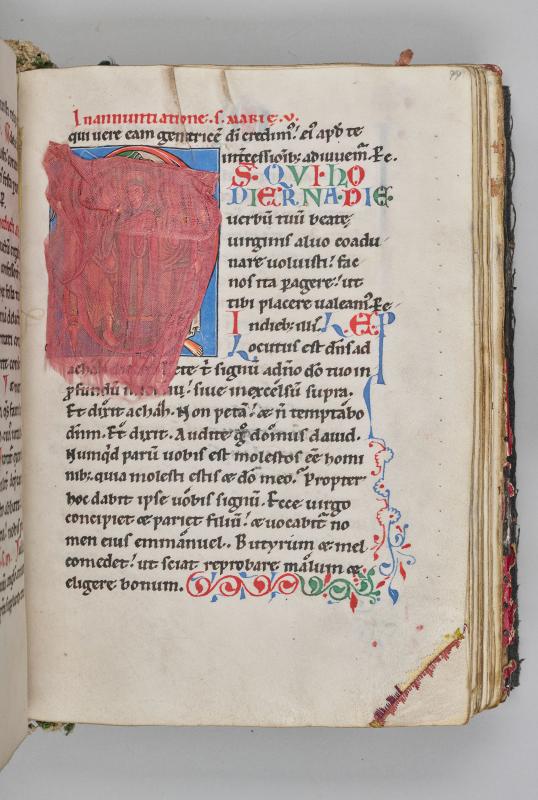 In annuntiatione. s. MARIE. v.
99
qui vere eam genitricē dī credim᷒! ei᷒ apᷘ te
intercessionib; adiuuem᷒. Per.
S. QVI hO
DIERNA DIE
uerbū tuū beate
uirginis aluo coadu
nare uoluisti! fac
nos ita ꝑagere! ut
tibi placere ualeam᷒. Per
In dieb; illis. LEP
Locutus est dn̄s ad
achaz Pete t̄ signū a dn̄o dō tuo in
ꝓfundū ! siue in excelsū supra.
Et dixit achaz. Non petā! & n̄ temptabo
dn̄m. Et dixit. Audite g̊ domus dauid.
Nunq̄d parū uobis est molestos eē homi
nib; quia molesti estis & dō meo. Propter
hoc dabit ipse uobis signū. Ecce uirgo
concipiet & pariet filiū! & uocabit᷑ no
men eius emmanuel. Butyrum & mel
comedet! ut sciat reprobare malum &
eligere bonum.